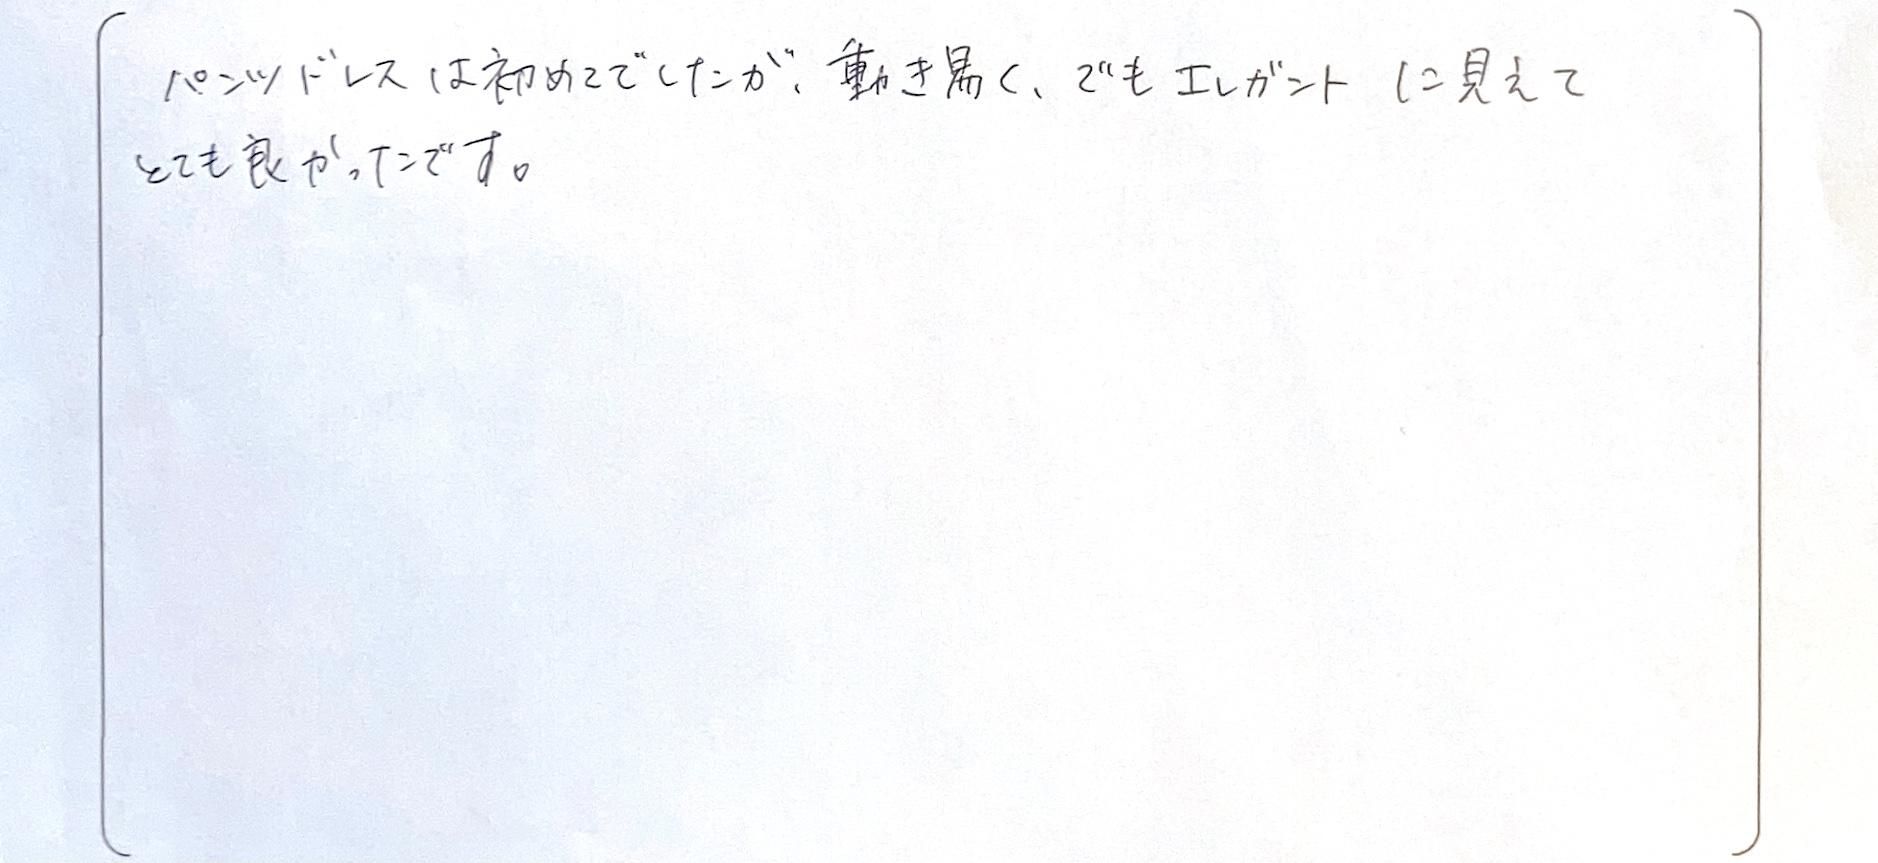 パンツドレスは初めてでしたが、動き易く、でもエレガントに見えて
とても良かったです。